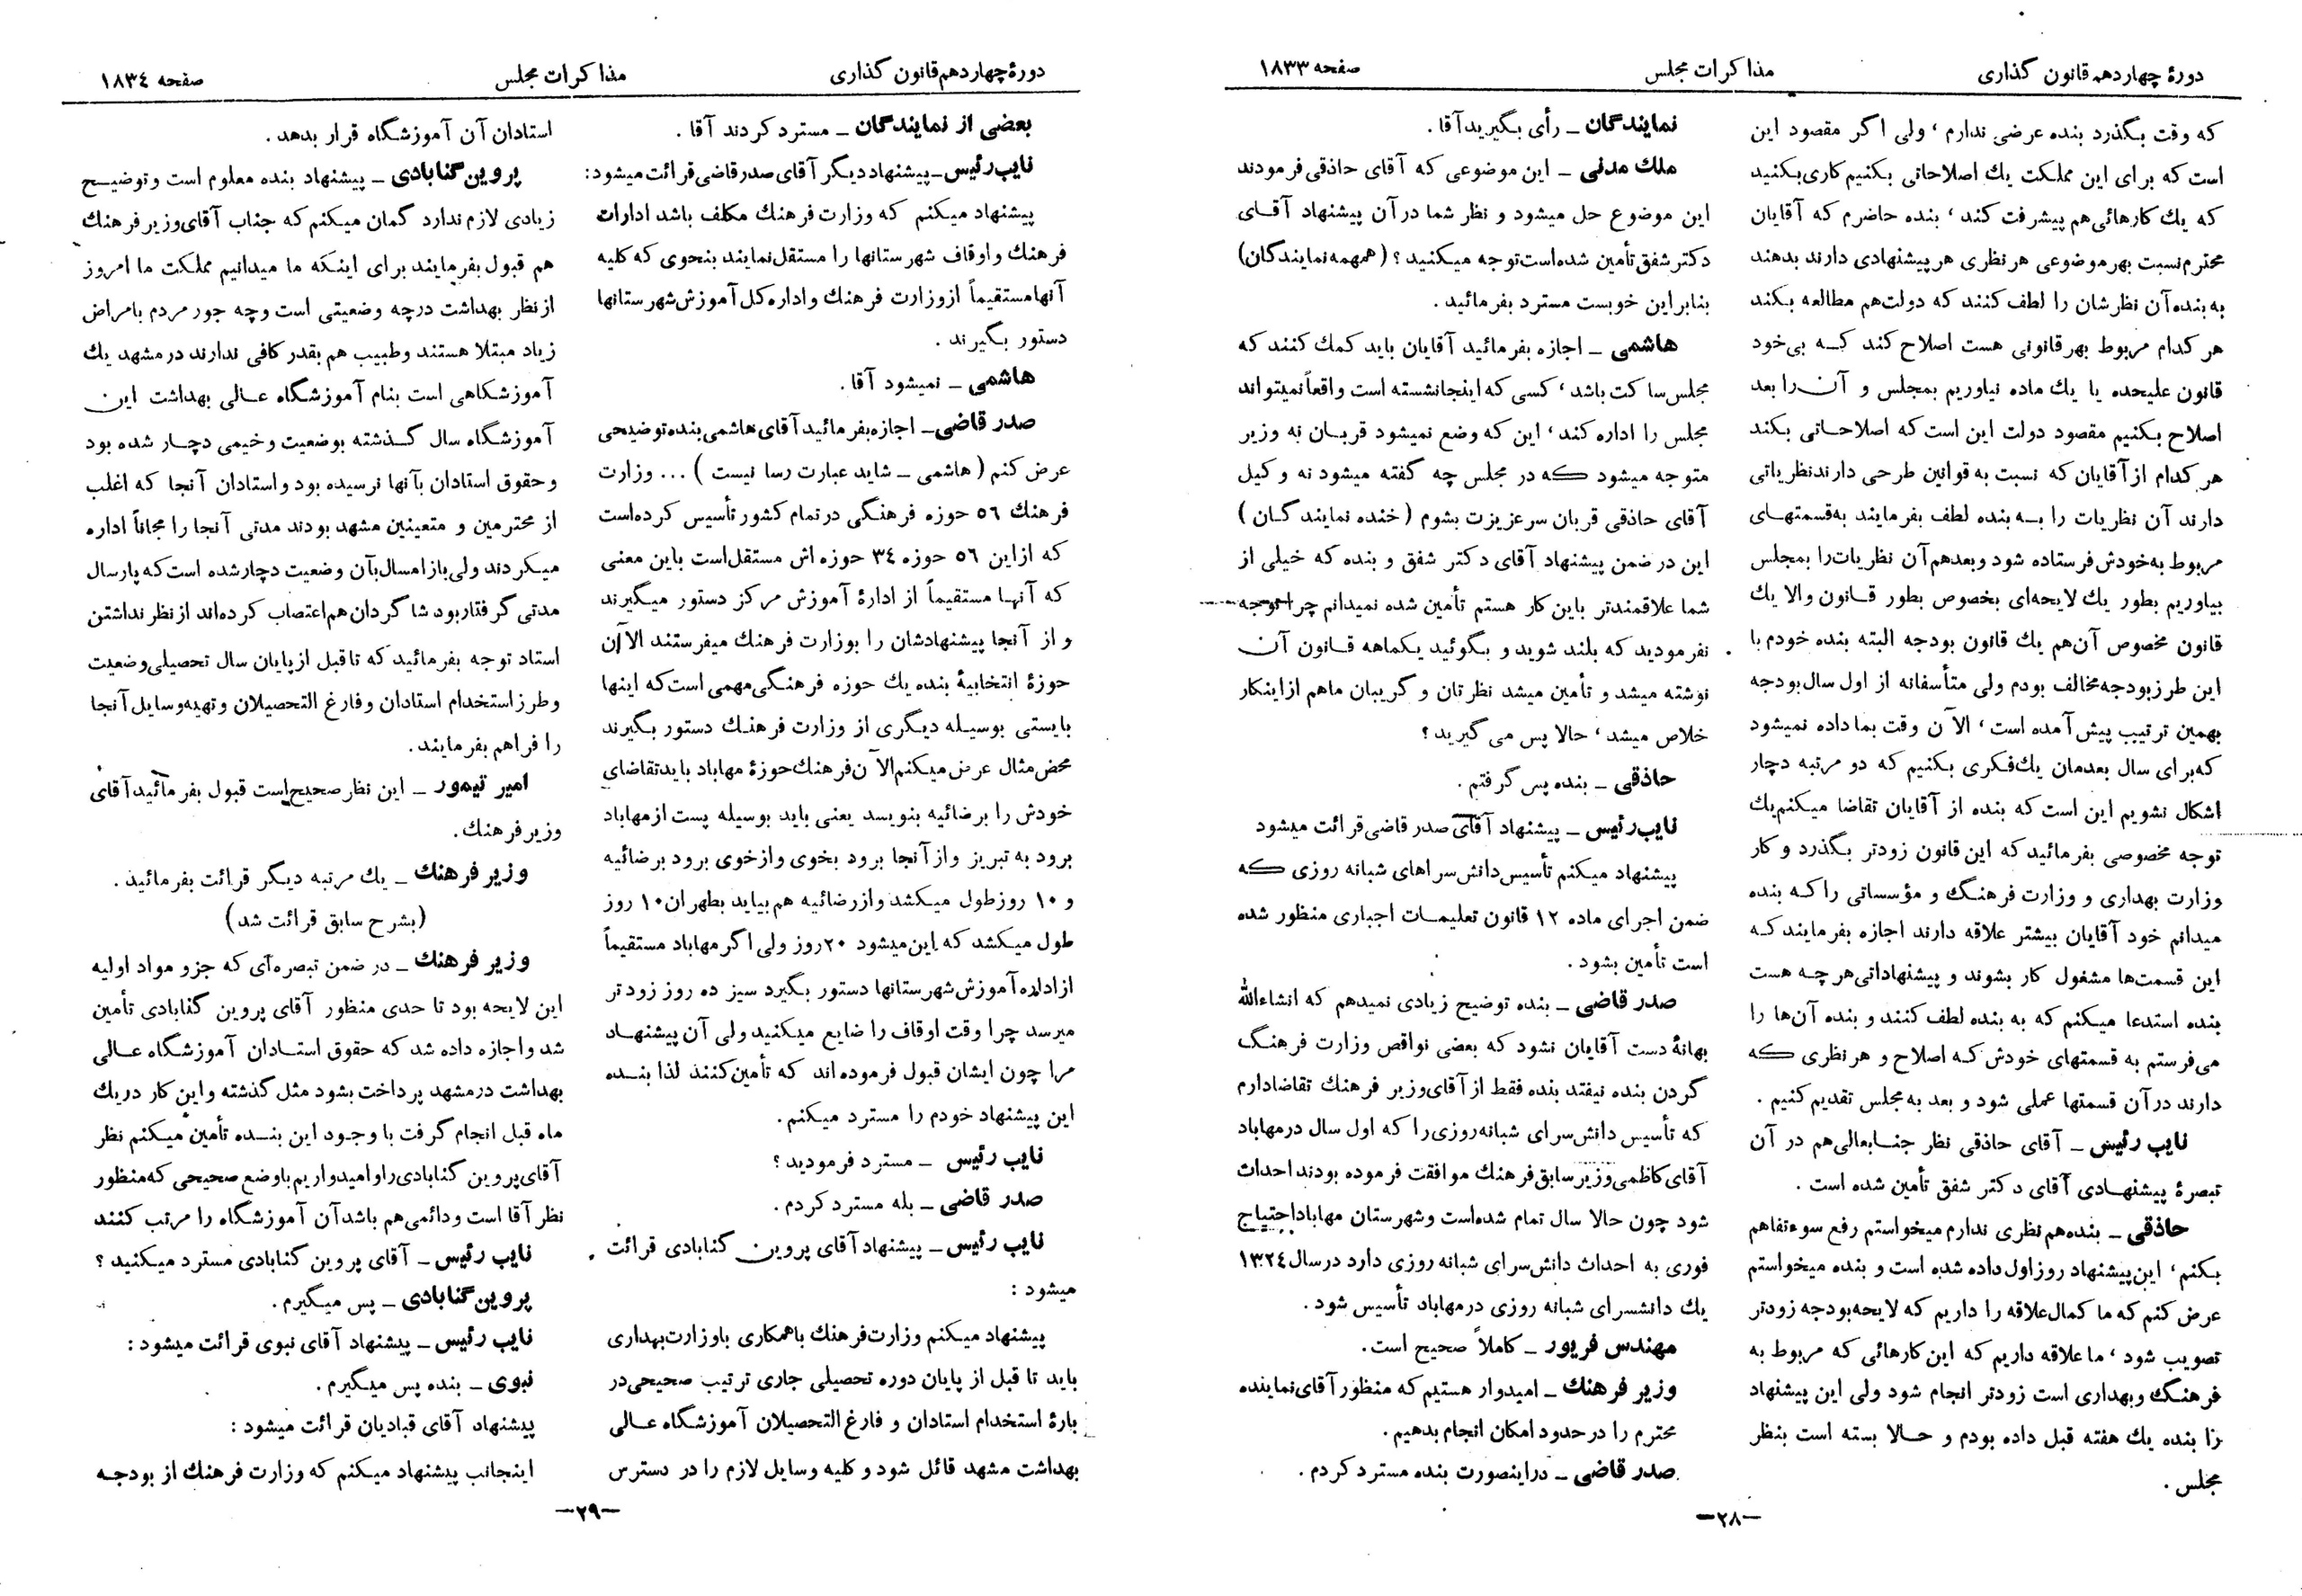 دورۀ چهاردهم قانون گذاری
مذاکرات مجلس
صفحه ۱۸۳۳
که وقت بگذرد بنده عرضی ندارم ، ولی اگر مقصود این
است که برای این مملکت یك اصلاحاتی بکنیم کاری بکنید
که یك کارهائی هم پیشرفت کند ، بنده حاضرم که آقایان
محترم نسبت بهر موضوعی هر نظری هر پیشنهادی دارند بدهند
به بنده آن نظرشان را لطف کنند که دولت هم مطالعه بکند
هر کدام مربوط بهر قانونی هست اصلاح کند که بی خود
قانون علیحده یا یك ماده نیاوریم بمجلس و آن را بعد
اصلاح بکنیم مقصود دولت این است که اصلاحاتی بکند
هر کدام از آقایان که نسبت به قوانین طرحی دارند نظریاتی
دارند آن نظریات را به بنده لطف بفرمایند به قسمتهای
مربوط به خودش فرستاده شود و بعد هم آن نظریات را بمجلس
بیاوریم بطور یك لایحه‌ای بخصوص بطور قانون والا یك
قانون مخصوص آن هم یك قانون بودجه البته بنده خودم با
این طرز بودجه مخالف بودم ولی متأسفانه از اول سال بودجه
بهمین ترتیب پیش آمده است ، الآن وقت بما داده نمیشود
که برای سال بعدمان یك فکری بکنیم که دو مرتبه دچار
اشکال نشویم این است که بنده از آقایان تقاضا میکنم یك
توجه مخصوصی بفرمائید که این قانون زودتر بگذرد و کار
وزارت بهداری و وزارت فرهنگ و مؤسساتی را که بنده
میدانم خود آقایان بیشتر علاقه دارند اجازه بفرمایند که
این قسمت‌ها مشغول کار بشوند و پیشنهاداتی هر چه هست
بنده استدعا میکنم که به بنده لطف کنند و بنده آن‌ها را
می‌فرستم به قسمتهای خودش که اصلاح و هر نظری که
دارند در آن قسمتها عملی شود و بعد به مجلس تقدیم کنیم .
نایب رئیس ـ آقای حاذقی نظر جنابعالی هم در آن
تبصرۀ پیشنهادی آقای دکتر شفق تأمین شده است .
حاذقی ـ بنده هم نظری ندارم میخواستم رفع سوء تفاهم
بکنم ، این پیشنهاد روز اول داده شده است و بنده میخواستم
عرض کنم که ما کمال علاقه را داریم که لایحه بودجه زودتر
تصویب شود ، ما علاقه داریم که این کارهائی که مربوط به
فرهنگ و بهداری است زودتر انجام شود ولی این پیشنهاد
را بنده یك هفته قبل داده بودم و حالا بسته است بنظر
مجلس .
نمایندگان ـ رأی بگیرید آقا .
ملك مدنی ـ این موضوعی که آقای حاذقی فرمودند
این موضوع حل میشود و نظر شما در آن پیشنهاد آقای
دکتر شفق تأمین شده است توجه میکنید ؟ (همهمه نمایندگان)
بنابر این خوبست مسترد بفرمائید .
هاشمی ـ اجازه بفرمائید آقایان باید کمك کنند که
مجلس ساکت باشد ، کسی که اینجا نشسته است واقعاً نمیتواند
مجلس را اداره کند ، این که وضع نمیشود قربان نه وزیر
متوجه میشود که در مجلس چه گفته میشود نه وکیل
آقای حاذقی قربان سر عزیزت بشوم (خنده نمایندگان)
این در ضمن پیشنهاد آقای دکتر شفق و بنده که خیلی از
شما علاقمندتر باین کار هستم تأمین شده نمیدانم چرا توجه
نفرمودید که بلند شوید و بگوئید یکماهه قانون آن
نوشته میشد و تأمین میشد نظرتان و گریبان ما هم از اینکار
خلاص میشد ، حالا پس می گیرید ؟
حاذقی ـ بنده پس گرفتم .
نایب رئیس ـ پیشنهاد آقای صدر قاضی قرائت میشود
پیشنهاد میکنم تأسیس دانش سراهای شبانه روزی که
ضمن اجرای ماده ۱۲ قانون تعلیمات اجباری منظور شده
است تأمین بشود .
صدر قاضی ـ بنده توضیح زیادی نمیدهم که انشاءالله
بهانۀ دست آقایان نشود که بعضی نواقص وزارت فرهنگ
گردن بنده نیفتد بنده فقط از آقای وزیر فرهنك تقاضا دارم
که تأسیس دانش سرای شبانه روزی را که اول سال در مهاباد
آقای کاظمی وزیر سابق فرهنك موافقت فرموده بودند احداث
شود چون حالا سال تمام شده است و شهرستان مهاباد احتیاج
فوری به احداث دانش سرای شبانه روزی دارد در سال ۱۳۲۴
یك دانشسرای شبانه روزی در مهاباد تأسیس شود .
مهندس فریور ـ کاملاً صحیح است.
وزیر فرهنك ـ امیدوار هستیم که منظور آقای نماینده
محترم را در حدود امکان انجام بدهیم.
صدر قاضی ـ در اینصورت بنده مسترد کردم .
ـ۲۸ـ
دورۀ چهاردهم قانون گذاری
مذاکرات مجلس
صفحه ۱۸۳۴
بعضی از نمایندگان ـ مسترد کردند آقا .
نایب رئیس ـ پیشنهاد دیگر آقای صدر قاضی قرائت میشود:
پیشنهاد میکنم که وزارت فرهنك مکلف باشد ادارات
فرهنك و اوقاف شهرستانها را مستقل نمایند بنحوی که کلیه
آنها مستقیماً از وزارت فرهنك و اداره کل آموزش شهرستانها
دستور بگیرند .
هاشمی ـ نمیشود آقا .
صدر قاضی ـ اجازه بفرمائید آقای هاشمی بنده توضیحی
عرض کنم (هاشمی ـ شاید عبارت رسا نیست) ... وزارت
فرهنك ۵۶ حوزه فرهنگی در تمام کشور تأسیس کرده است
که از این ۵۶ حوزه ۳۴ حوزه اش مستقل است باین معنی
که آنها مستقیماً از ادارۀ آموزش مرکز دستور میگیرند
و از آنجا پیشنهادشان را بوزارت فرهنك میفرستند الآن
حوزۀ انتخابیۀ بنده یك حوزه فرهنگی مهمی است که اینها
بایستی بوسیله دیگری از وزارت فرهنك دستور بگیرند
محض مثال عرض میکنم الآن فرهنك حوزۀ مهاباد باید تقاضای
خودش را برضائیه بنویسد یعنی باید بوسیله پست از مهاباد
برود به تبریز و از آنجا برود بخوی و از خوی برود برضائیه
و ۱۰ روز طول میکشد و از رضائیه هم بیاید بطهران ۱۰ روز
طول میکشد که این میشود ۲۰ روز ولی اگر مهاباد مستقیماً
از اداره آموزش شهرستانها دستور بگیرد سیزده روز زودتر
میرسد چرا وقت اوقاف را ضایع میکنید ولی آن پیشنهاد
مرا چون ایشان قبول فرموده اند که تأمین کنند لذا بنده
این پیشنهاد خودم را مسترد میکنم.
نایب رئیس ـ مسترد فرمودید ؟
صدر قاضی ـ بله مسترد کردم .
نایب رئیس ـ پیشنهاد آقای پروین گنابادی قرائت
میشود :
پیشنهاد میکنم وزارت فرهنك با همکاری با وزارت بهداری
باید تا قبل از پایان دوره تحصیلی جاری ترتیب صحیحی در
بارۀ استخدام استادان و فارغ التحصیلان آموزشگاه عالی
بهداشت مشهد قائل شود و کلیه وسایل لازم را در دسترس
استادان آن آموزشگاه قرار بدهد .
پروین گنابادی ـ پیشنهاد بنده معلوم است و توضیح
زیادی لازم ندارد گمان میکنم که جناب آقای وزیر فرهنك
هم قبول بفرمایند برای اینکه ما میدانیم مملکت ما امروز
از نظر بهداشت در چه وضعیتی است و چه جور مردم بامراض
زیاد مبتلا هستند و طبیب هم بقدر کافی ندارند در مشهد یك
آموزشگاهی است بنام آموزشگاه عالی بهداشت این
آموزشگاه سال گذشته بوضعیت وخیمی دچار شده بود
و حقوق استادان بآنها نرسیده بود و استادان آنجا که اغلب
از محترمین و متعینین مشهد بودند مدتی آنجا را مجاناً اداره
میکردند ولی باز امسال بآن وضعیت دچار شده است که پارسال
مدتی گرفتار بود شاگردان هم اعتصاب کرده‌اند از نظر نداشتن
استاد توجه بفرمائید که تا قبل از پایان سال تحصیلی وضعیت
و طرز استخدام استادان و فارغ التحصیلان و تهیه وسایل آنجا
را فراهم بفرمایند.
امیر تیمور ـ این نظر صحیح است قبول بفرمائید آقای
وزیر فرهنك .
وزیر فرهنك ـ یك مرتبه دیگر قرائت بفرمائید .
(بشرح سابق قرائت شد)
وزیر فرهنك ـ در ضمن تبصره‌ای که جزو مواد اولیه
این لایحه بود تا حدی منظور آقای پروین گنابادی تأمین
شد و اجازه داده شد که حقوق استادان آموزشگاه عالی
بهداشت در مشهد پرداخت بشود مثل گذشته و این کار در یك
ماه قبل انجام گرفت با وجود این بنده تأمین میکنم نظر
آقای پروین گنابادی را و امیدواریم با وضع صحیحی که منظور
نظر آقا است و دائمی هم باشد آن آموزشگاه را مرتب کنند
نایب رئیس ـ آقای پروین گنابادی مسترد میکنید ؟
پروین گنابادی ـ پس میگیرم .
نایب رئیس ـ پیشنهاد آقای نبوی قرائت میشود :
نبوی ـ بنده پس میگیرم .
پیشنهاد آقای قبادیان قرائت میشود :
اینجانب پیشنهاد میکنم که وزارت فرهنك از بودجه
ـ۲۹ـ